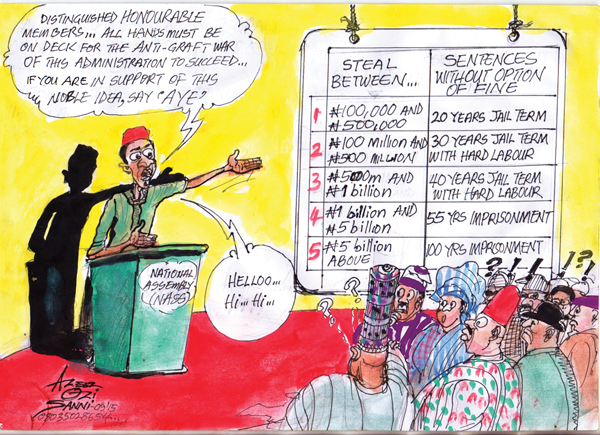 DISTINGUISHED HONOURABLE
MEMBERS... ALL HANDS MUST BE
ON DECK FOR THE ANTI-GRAFT WAR
OF THIS ADMINISTRATION TO SUCCEED...
IF YOU ARE IN SUPPORT OF THIS
NOBLE IDEA, SAY "AYE?
STEAL
BETWEEN...
SENTENCES
WITHOUT OPTION
OF FINE
1 ₦100,000 AND
₦500,000
20 YEARS JAIL TERM
2 ₦100 Million AND
₦900 MILLION
30 YEARS JAIL TERM
WITH HARD LABOUR
3 ₦500m AND
₦1 billion
40 YEARS JAIL TERM
WITH HARD LABOUR
4 ₦1 billion AND
₦5 billion
55 YRS IMPRISONMENT
5 ₦5 billion
ABOVE
100 YRS IMPRISONMENT
HELLOO...
Hi... Hi...
NATIONAL
ASSEMBLY
(NASS)
? ! ! , ! ?
? ? ?
AZEEZ
OZI
SANNI